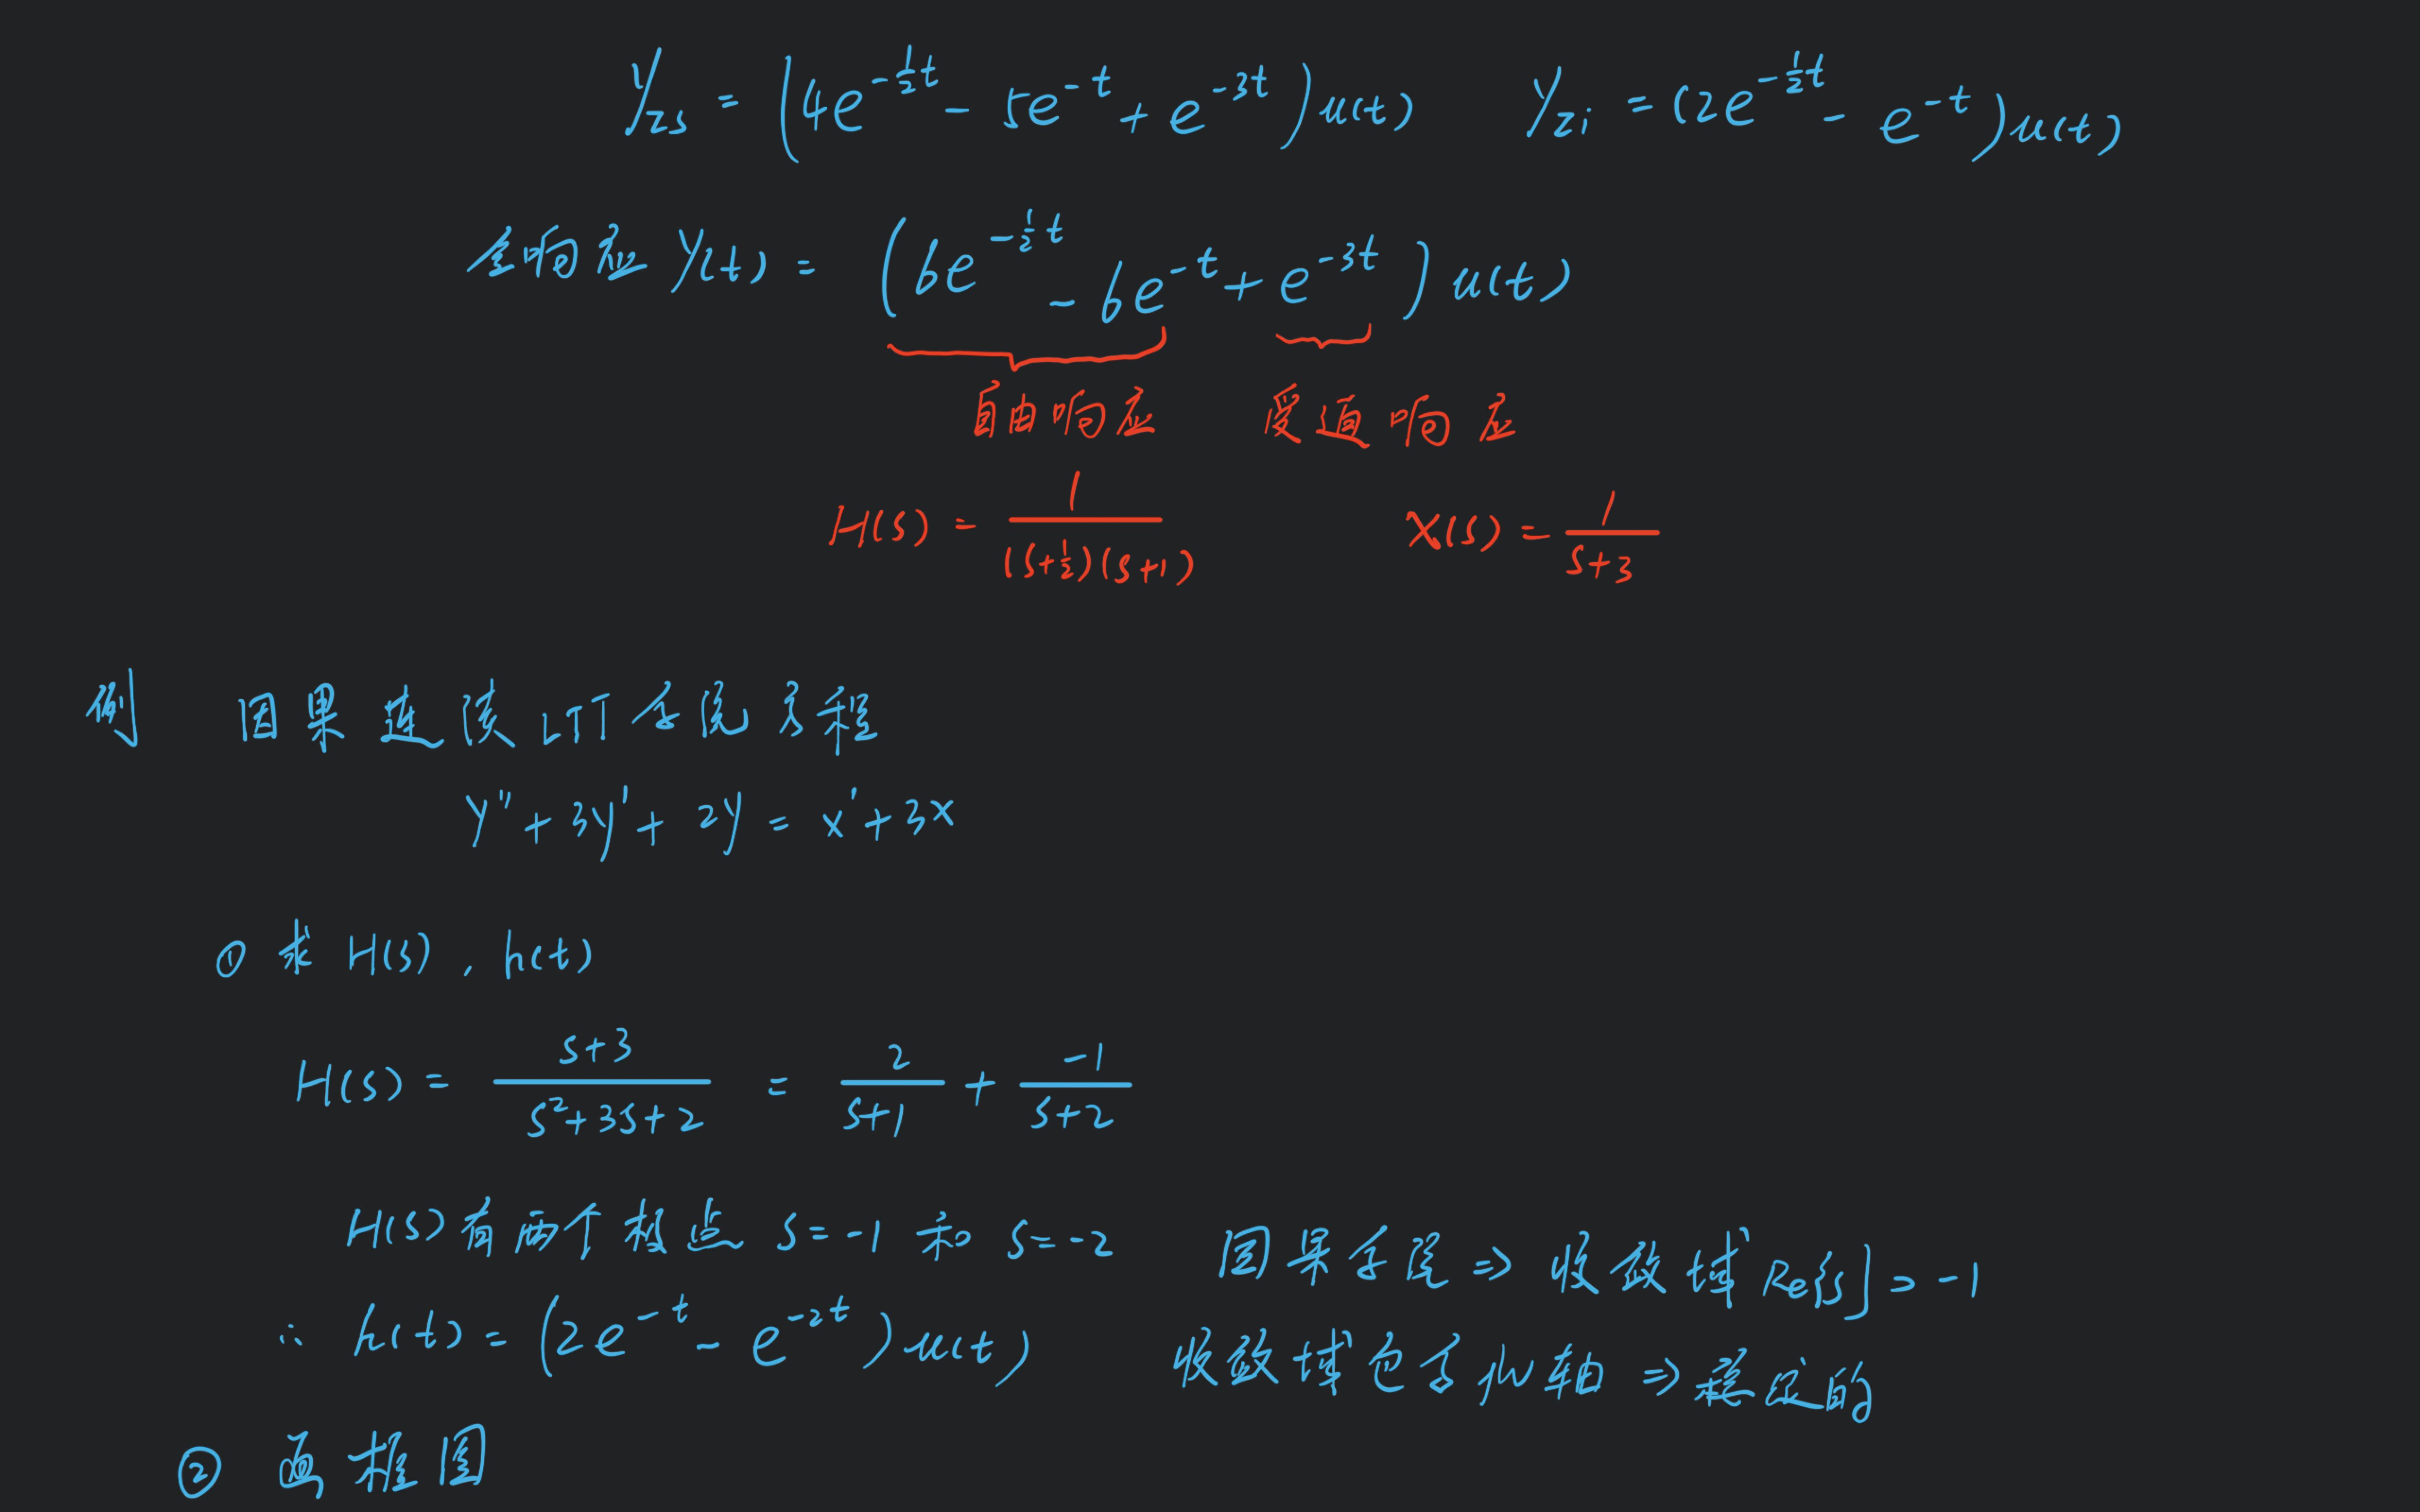 y_zs = (4e^{-\frac{1}{2}t} - 5e^{-t} + e^{-3t})u(t)  y_zi = (2e^{-\frac{1}{2}t} - e^{-t})u(t)
全响应 y(t) = (6e^{-\frac{1}{2}t} - 6e^{-t} + e^{-3t})u(t)
自由响应 强迫响应
H(s) = \frac{1}{(s+\frac{1}{2})(s+1)}  X(s) = \frac{1}{s+3}
例 因果连续LTI系统方程
y'' + 3y' + 2y = x' + 3x
① 求 H(s), h(t)
H(s) = \frac{s+3}{s^2+3s+2} = \frac{2}{s+1} + \frac{-1}{s+2}
H(s)有两个极点 s=-1 和 s=-2 因果系统 ⇒ 收敛域 Re{s} > -1
∴ h(t) = (2e^{-t} - e^{-2t})u(t) 收敛域包含jw轴 ⇒ 稳定的
② 画框图